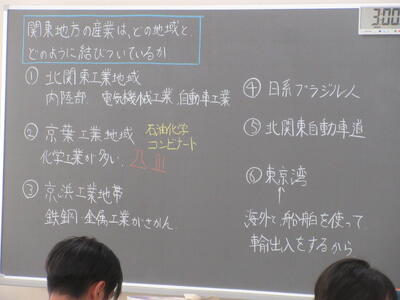 関東地方の産業は、どの地域と、
どのように結びついているか
① 北関東工業地域
内陸部、電気機械工業、自動車工業
② 京葉工業地域
石油化学
コンビナート
化学工業が多い。
③ 京浜工業地帯
鉄鋼・金属工業がさかん。
3:00
④ 日系ブラジル人
⑤ 北関東自動車道
⑥ 東京湾
↑
海外と船舶を使って
輸出入をするから